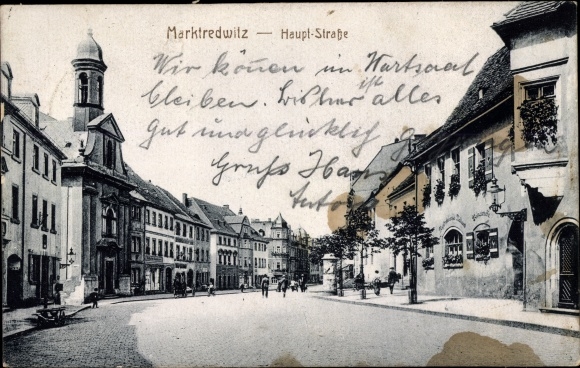 Marktredwitz — Haupt-Straße
Wir können im Wartsaal
bleiben. Bisher ist alles
gut und glücklich gegangen
Gruß Hans